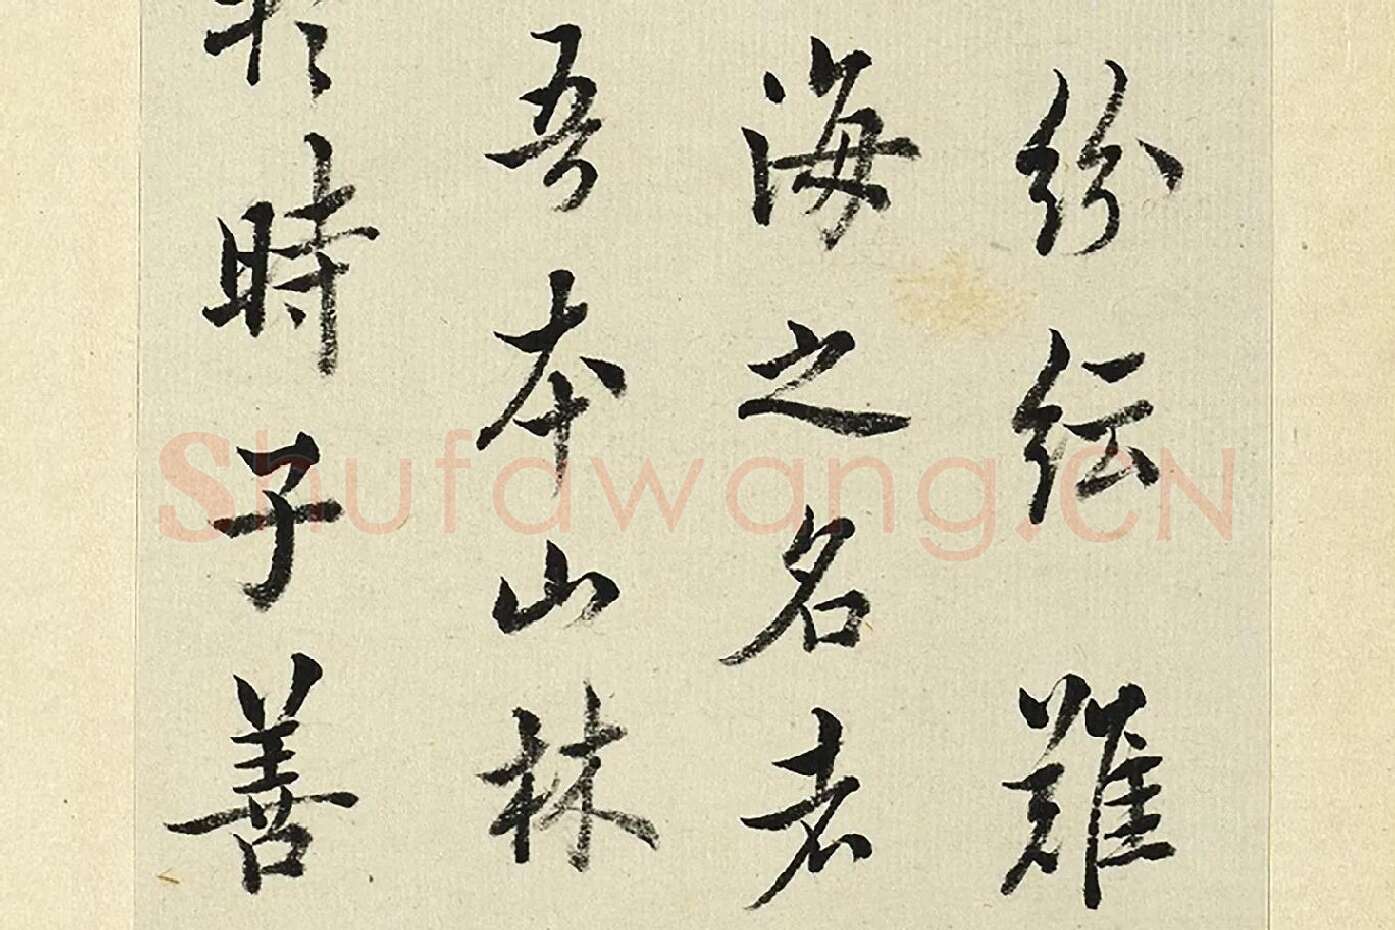 紛紜難
海之名者
吾本山林
於時子善
Shufawang.CN